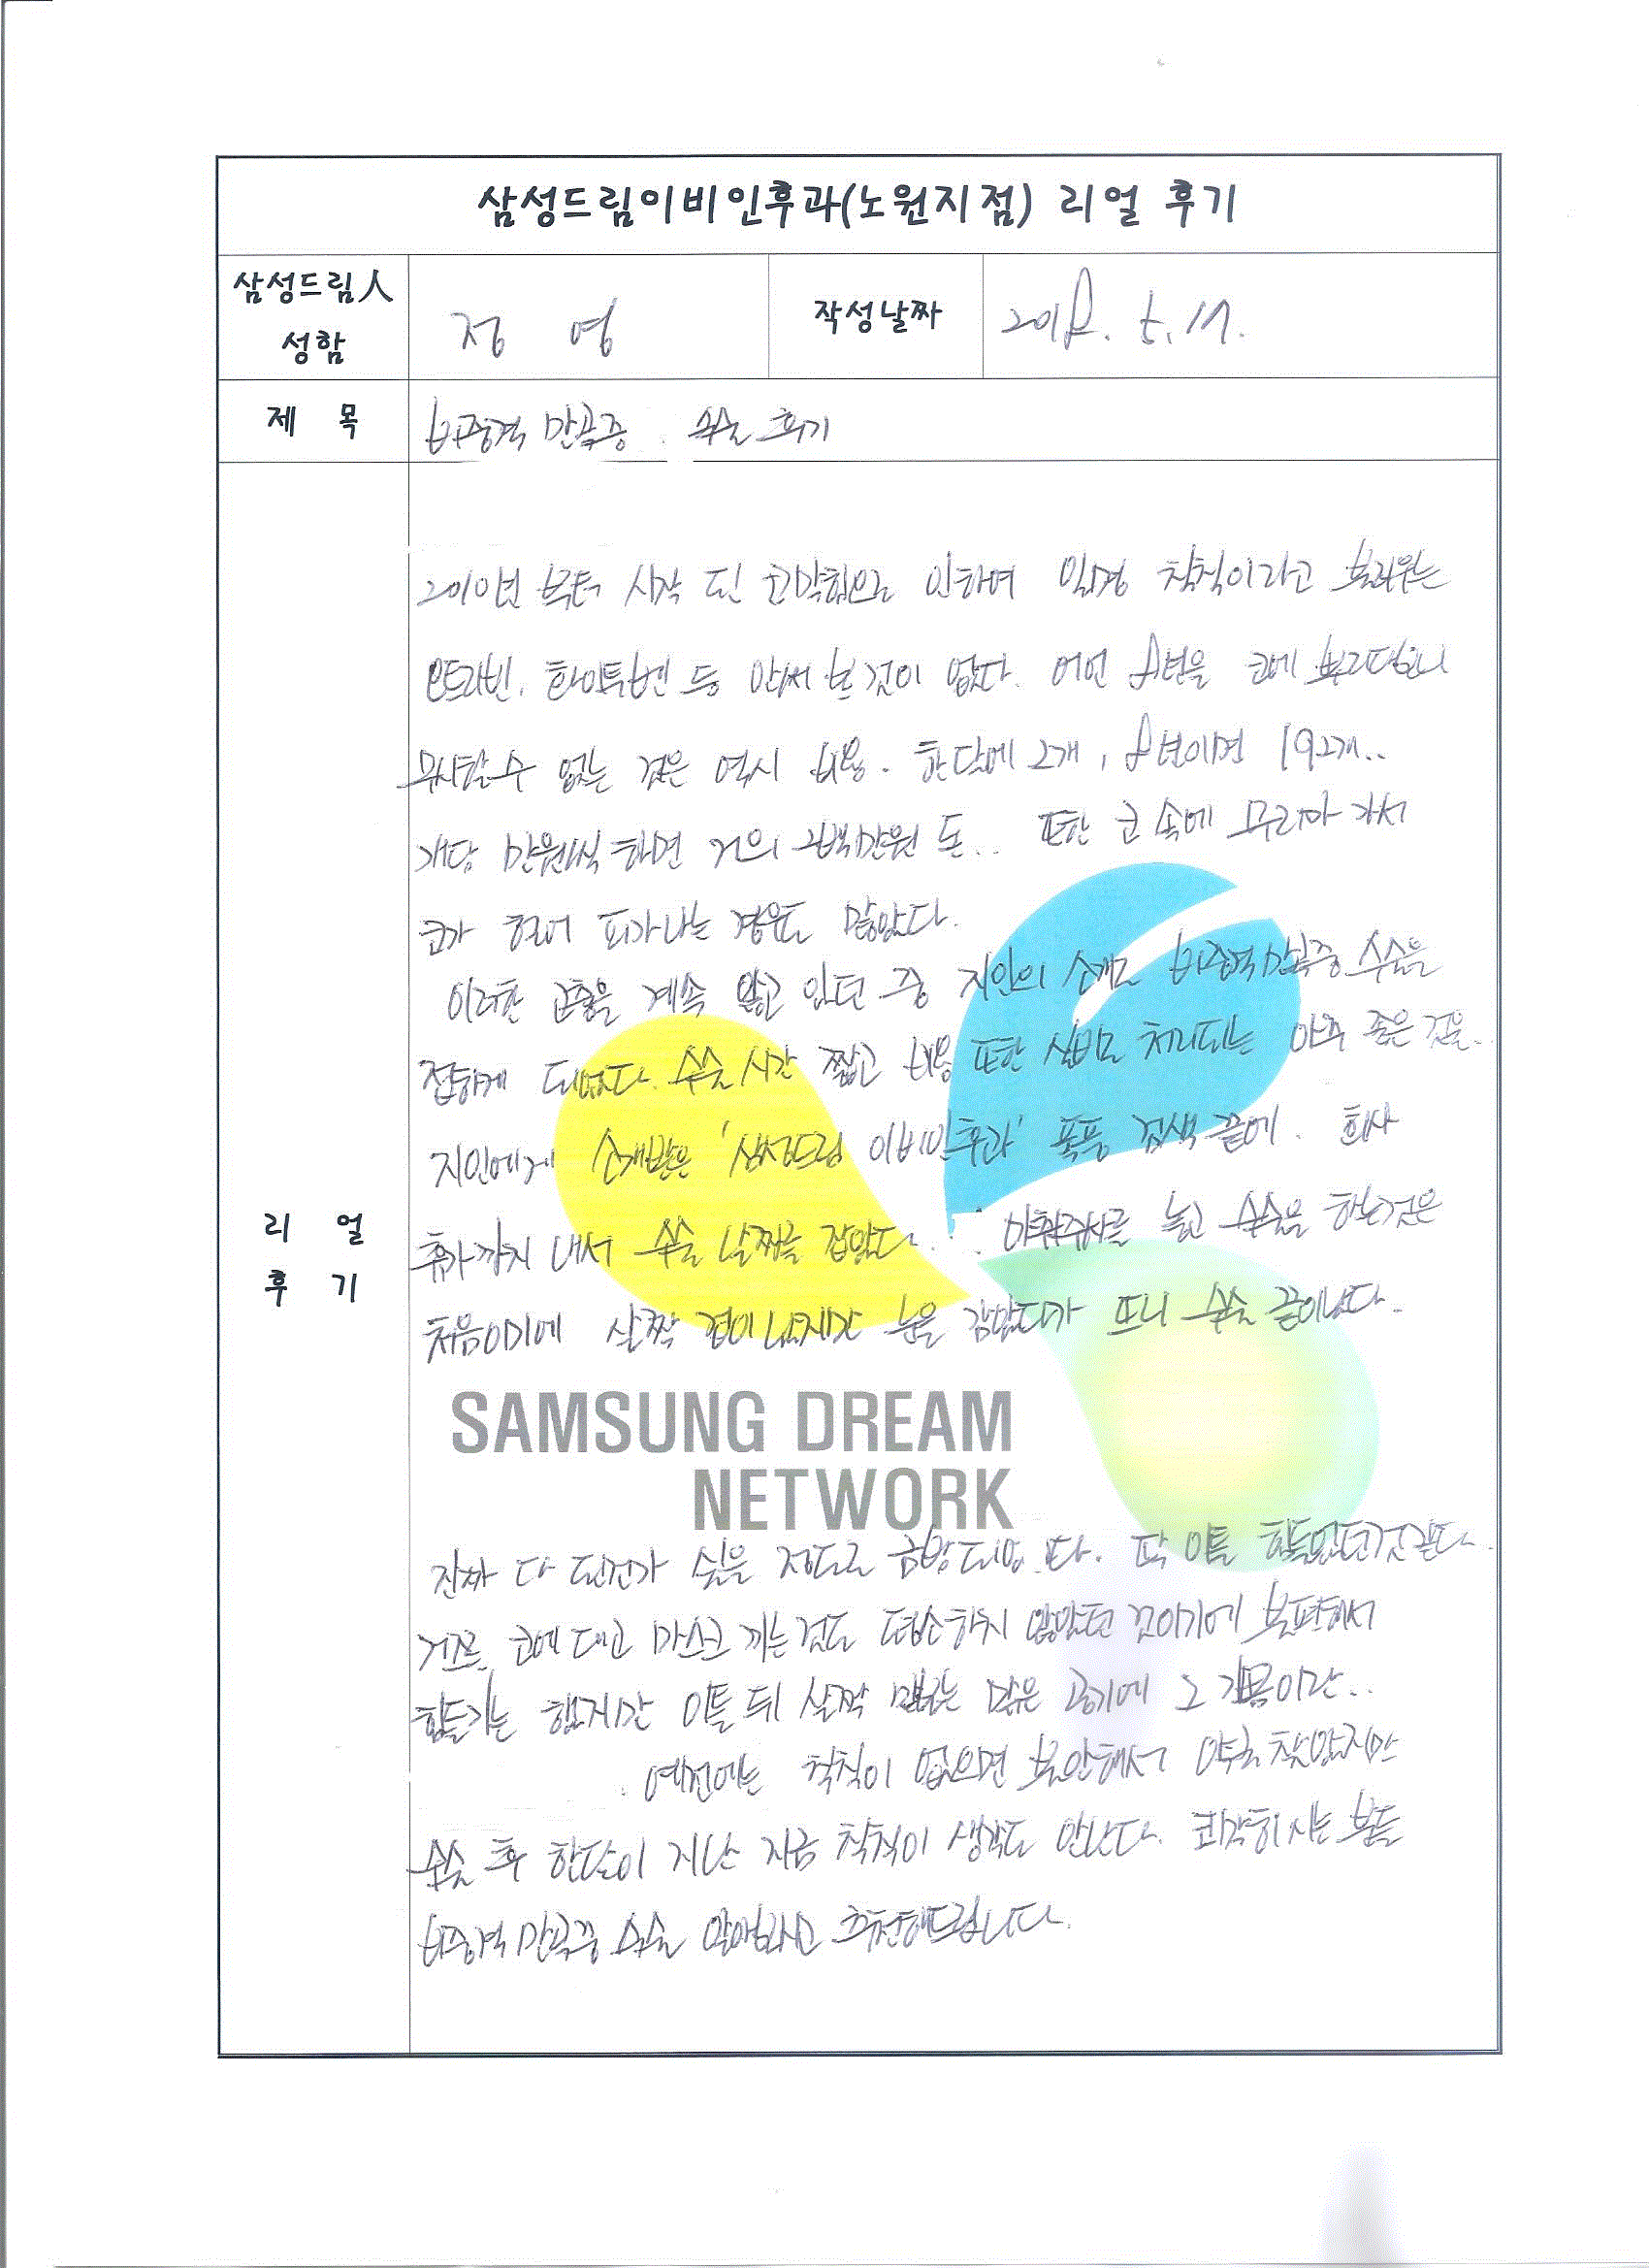 삼성드림이비인후과(노원지점) 리얼 후기
삼성드림人 성함
정 영
작성날짜
2018. 5. 17.
제 목
비중격 만곡증 수술 후기
리 얼 후 기
2010년 부터 시작 된 코막힘으로 인하여 일명 칙칙이라고 불리우는
오트리빈, 화이투벤 등 안써 본 것이 없다. 어언 8년을 코에 뿌리다보니
무시할수 없는 것은 역시 비용. 한달에 2개, 8년이면 192개..
개당 만원씩 하면 거의 2백만원 돈.. 또한 코 속에 무리가 가서
코가 헐어 피가나는 경우도 많았다.
이러한 고충을 계속 앓고 있던 중 지인의 소개로 비중격만곡증 수술을
접하게 되었다. 수술 시간 짧고 비용 또한 실비로 처리되는 아주 좋은 것을..
지인에게 소개받은 '삼성드림 이비인후과' 폭풍 검색 끝에. 회사
휴가까지 내서 수술 날짜를 잡았다... 마취주사를 놓고 수술을 하는것은
처음이기에 살짝 겁이 났지만 눈을 감았다가 뜨니 수술 끝이났다.
SAMSUNG DREAM
NETWORK
진짜 다 된건가 싶을 정도로 금방 되었다. 딱 이틀 힘들었던것같다.
거즈를 코에 대고 마스크 끼는 것도 평소 하지 않았던 것이기에 불편해서
힘들기는 했지만 이틀 뒤 살짝 맡는 맑은 공기에 그 기분이란..
예전에는 칙칙이 없으면 불안해서 약국 찾았지만
수술 후 한달이 지난 지금 칙칙이 생각도 안난다. 코막히시는 분들
비중격 만곡증 수술 추천해드립니다.